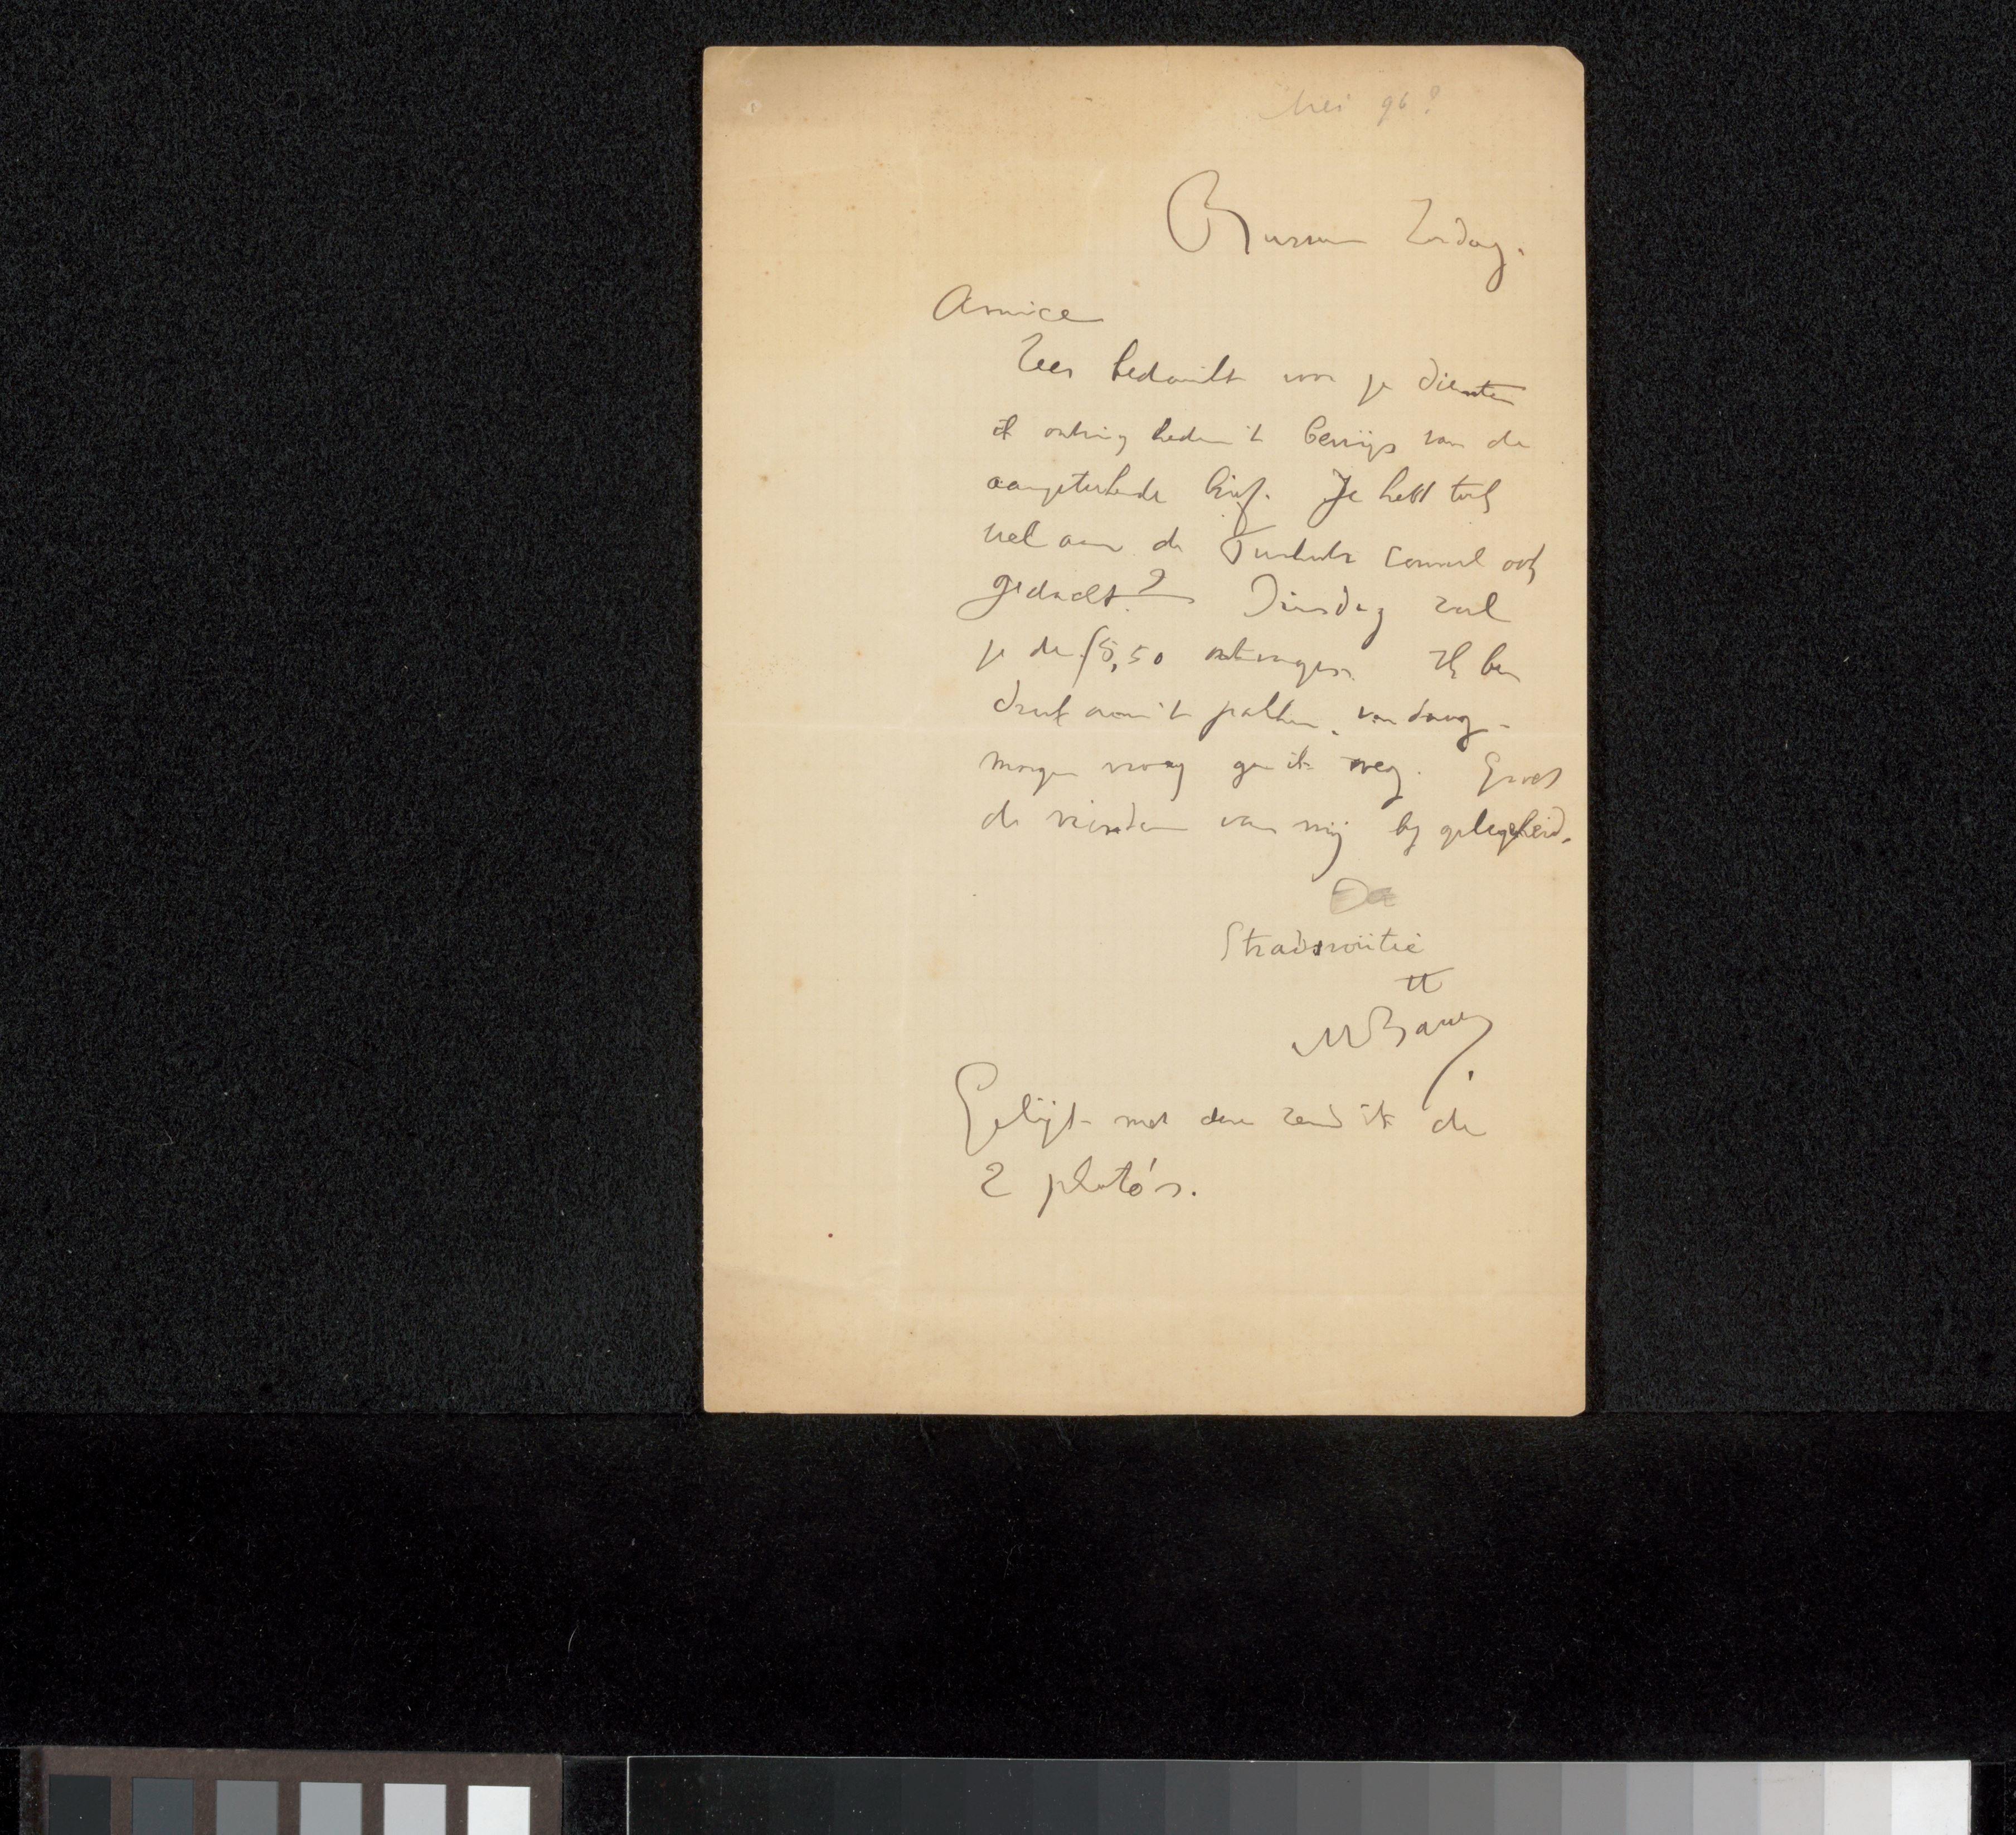 Mei 96?
Bussum Zondag.
Amice
Zeer bedankt voor je diensten
ik ontving heden 't bewijs van de
aangetekende brief. Je hebt toch
wel aan de Turksche consul ook
gedacht? Dinsdag zal
je de f5,50 ontvangen. Ik ben
druk aan 't pakken, vandaag -
morgen vroeg ga ik weg. Groet
de vrienden van mij bij gelegenheid.
Stradswoitie
tt
MBauer
Gelijk met deze zend ik de
2 photo's.